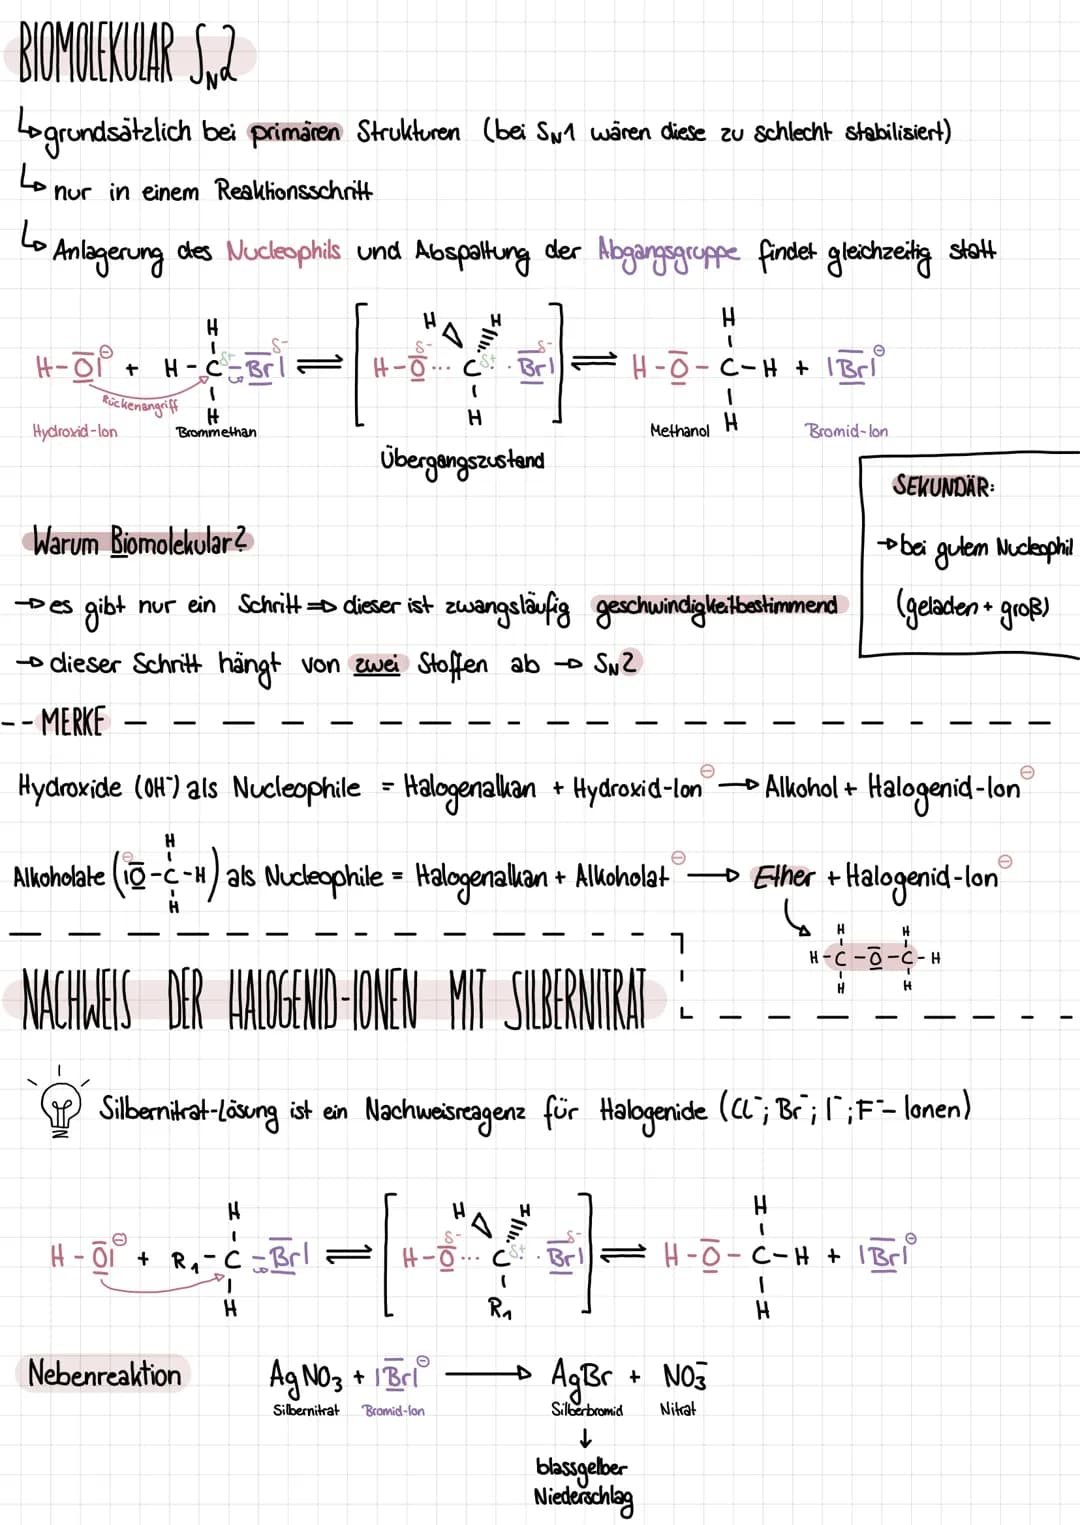 BIOMOLEKULAR SN2
↳ grundsätzlich bei primären Strukturen (bei SN1 wären diese zu schlecht stabilisiert)
↳ nur in einem Reaktionsschritt
↳ Anlagerung des Nucleophils und Abspaltung der Abgangsgruppe findet gleichzeitig statt
H H H H
H-O|⊖ + H-C δ+ -Br| δ- ⇌ [ H-O δ- ... C δ+ . Br| δ- ] ⇌ H-O-C-H + |Br|⊖
Rückenangriff
H H H
Hydroxid-Ion Brommethan Methanol Bromid-Ion
Übergangszustand
SEKUNDÄR:
→ bei gutem Nucleophil
(geladen + groß)
Warum Biomolekular?
→ es gibt nur ein Schritt ⇒ dieser ist zwangsläufig geschwindigkeitbestimmend
→ dieser Schritt hängt von zwei Stoffen ab → SN2
-- MERKE
Hydroxide (OH⁻) als Nucleophile = Halogenalkan + Hydroxid-Ion⊖ → Alkohol + Halogenid-Ion⊖
H
Alkoholate (⊖|O-C-H) als Nucleophile = Halogenalkan + Alkoholat⊖ → Ether + Halogenid-Ion⊖
H
H H
H-C-O-C-H
H H
NACHWEIS DER HALOGENID-IONEN MIT SILBERNITRAT
Silbernitrat-Lösung ist ein Nachweisreagenz für Halogenide (Cl⁻; Br⁻; I⁻; F⁻- Ionen)
H H H H
H-O|⊖ + R1-C-Br| ⇌ [ H-O δ- ... C δ+ . Br| δ- ] ⇌ H-O-C-H + |Br|⊖
H R1 H
Nebenreaktion AgNO3 + |Br|⊖ → AgBr + NO3⁻
Silbernitrat Bromid-Ion Silberbromid Nitrat
↓
blassgelber
Niederschlag